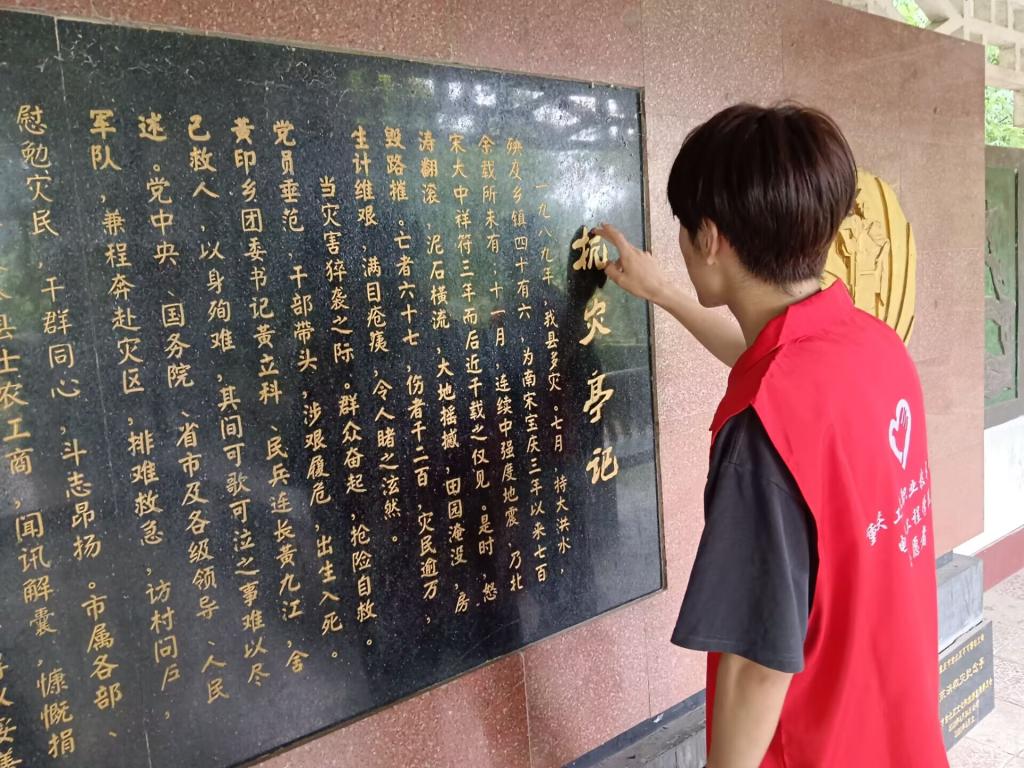 抗灾亭记
一九八九年，我县多灾。七月，特大洪水，
殃及乡镇四十有六，为南宋宝庆三年以来七百
余载所未有；十一月，连续中强度地震，乃北
宋大中祥符三年而后近千载之仅见。是时，怒
涛翻滚，泥石横流，大地摇撼，田园淹没，房
毁路摧。亡者六十七，伤者千二百，灾民逾万，
生计维艰，满目疮痍，令人睹之泫然。
当灾害猝袭之际。群众奋起，抢险自救。
党员垂范，干部带头，涉艰履危，出生入死。
黄印乡团委书记黄立科、民兵连长黄九江，舍
己救人，以身殉难，其间可歌可泣之事难以尽
述。党中央、国务院、省市及各级领导、人民
军队，兼程奔赴灾区，排难救急，访村问户，
慰勉灾民，干群同心，斗志昂扬。市属各部、
县士农工商，闻讯解囊，慷慨捐